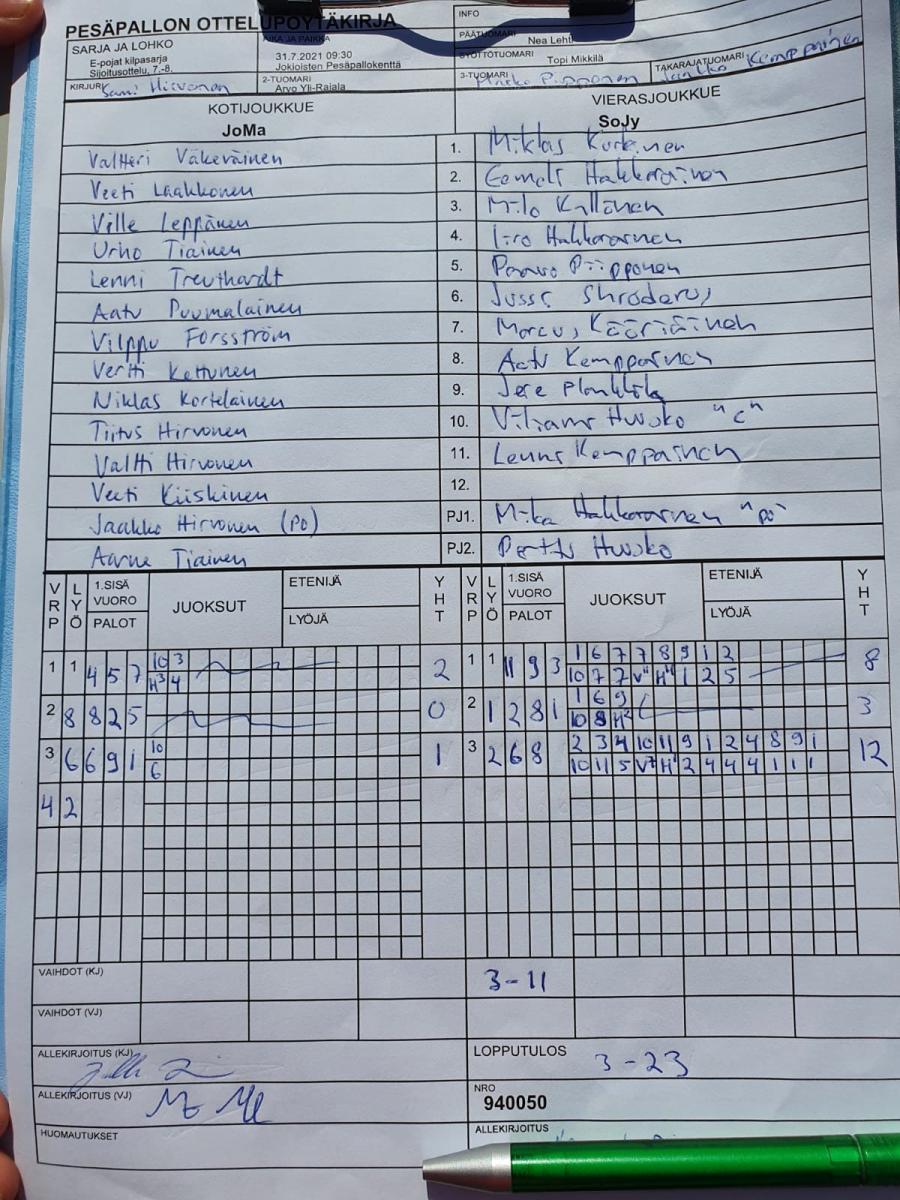 PESÄPALLON OTTELUPÖYTÄKIRJA
INFO
SARJA JA LOHKO
E-pojat kilpasarja
Sijoitusottelu, 7.-8.
AIKA JA PAIKKA
31.7.2021 09:30
Jokioisten Pesäpallokenttä
PÄÄTUOMARI
Nea Lehti
SYÖTTÖTUOMARI
Topi Mikkilä
TAKARAJATUOMARI
Jaakko Kemppainen
KIRJURI
Sami Hirvonen
2-TUOMARI
Arvo Yli-Rajala
3-TUOMARI
Marko Piipponen
KOTIJOUKKUE
JoMa
VIERASJOUKKUE
SoJy
Valtteri Väkeväinen 1. Miklas Kurkinen
Veeti Laakkonen 2. Eemeli Hakkarainen
Ville Leppänen 3. Milo Kallonen
Urho Tiainen 4. Iiro Hakkarainen
Lenni Treuthardt 5. Paavo Piipponen
Aatu Puumalainen 6. Jussi Shroderus
Vilppu Forsström 7. Marcus Kääriäinen
Vertti Kettunen 8. Aatu Kemppainen
Niklas Kortelainen 9. Jere
Tiitus Hirvonen 10. Viljami Huusko "C"
Valtti Hirvonen 11. Lenni Kemppainen
Veeti Kiiskinen 12.
Jaakko Hirvonen (PO) PJ1. Mika Hakkarainen "po"
Aarne Tiainen PJ2. Pertti Huusko
VRP LYÖ 1.SISÄ VUORO PALOT JUOKSUT ETENIJÄ LYÖJÄ YHT VRP LYÖ 1.SISÄ VUORO PALOT JUOKSUT ETENIJÄ LYÖJÄ YHT
1 1 4 5 7 10 3 2 1 1 11 9 3 1 6 7 7 8 9 1 2 8
H3 4 10 7 7 V11 H11 1 2 5
2 8 8 2 5 0 2 1 2 8 1 1 6 9 3
10 8 H2
3 6 6 9 1 10 1 3 2 6 8 2 3 4 10 11 9 1 2 4 8 9 1 12
6 10 11 5 V7 H1 2 4 4 4 1 1 1
4 2
VAIHDOT (KJ) 3-11
VAIHDOT (VJ)
ALLEKIRJOITUS (KJ)
LOPPUTULOS 3-23
ALLEKIRJOITUS (VJ)
NRO
940050
HUOMAUTUKSET
ALLEKIRJOITUS